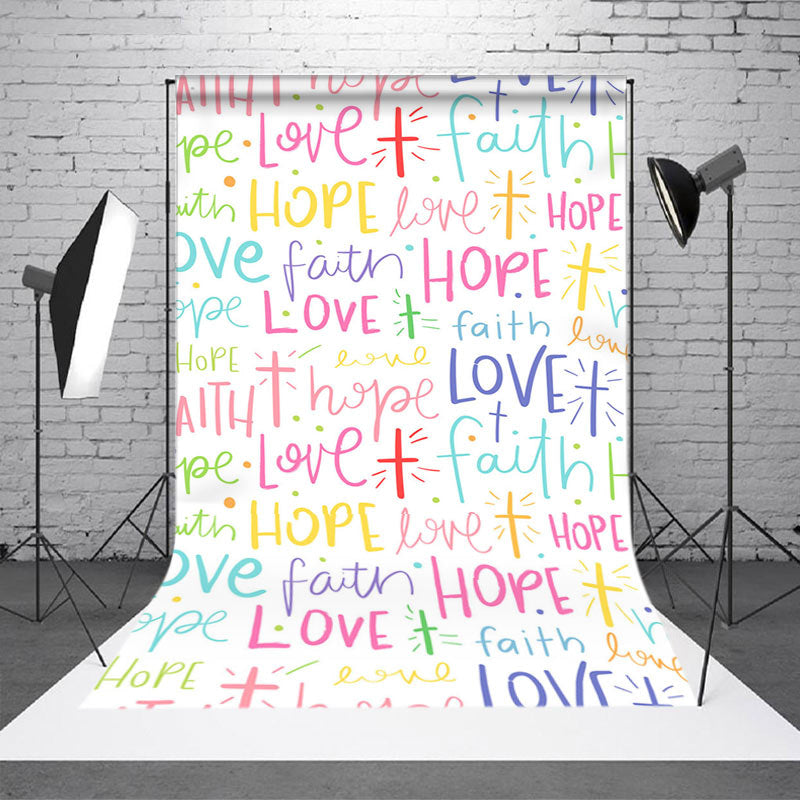 AITH hope LOVE
pe LOVE faith H
uith HOPE love HOPE
ove faith HOPE
ope LOVE faith love
HOPE love LOVE
AITH hope
pe LOVE faith H
uith HOPE love HOPE
ove faith HOPE
ope LOVE faith love
HOPE love LOVE